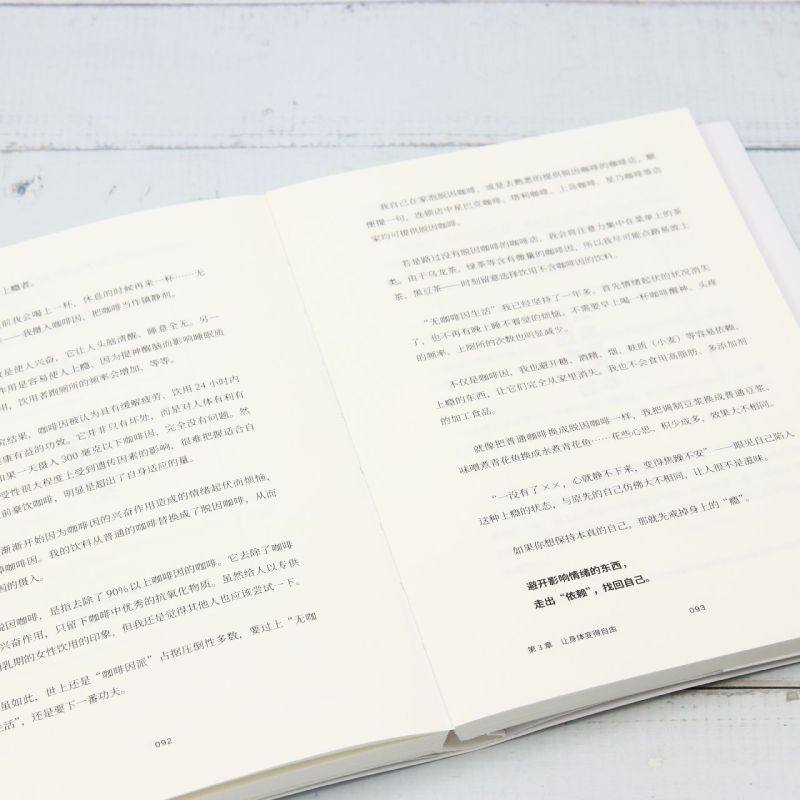 上瘾者。
前我会喝上一杯，休息的时候再来一杯……无
——我摄入咖啡因，把咖啡当作镇静剂。
是使人兴奋，它让人头脑清醒、睡意全无。另一
作用是容易使人上瘾、因为提神醒脑而影响睡眠质
，饮用者跑厕所的频率会增加，等等。
究结果，咖啡因被认为具有缓解疲劳，饮用 24 小时内
康有益的功效。它并非只有坏处，而是对人体有利有
如果一天摄入 300 毫克以下咖啡因，完全没有问题。然
受性很大程度上受到遗传因素的影响，很难把握适合自
前豪饮咖啡，明显是超出了自身适应的量。
渐渐开始因为咖啡因的兴奋作用造成的情绪起伏而烦恼，
掉咖啡因。我的饮料从普通的咖啡替换成了脱因咖啡，从而
因的摄入。
脱因咖啡，是指去除了 90% 以上咖啡因的咖啡。它去除了咖啡
兴奋作用，只留下咖啡中优秀的抗氧化物质。虽然给人以专供
乳期的女性饮用的印象，但我还是觉得其他人也应该尝试一下。
虽如此，世上还是“咖啡因派”占据压倒性多数，要过上“无咖
生活”，还是要下一番功夫。
092
我自己在家泡脱因咖啡，或是去熟悉的提供脱因咖啡的咖啡店，顺
便提一句，连锁店中星巴克咖啡、塔利咖啡、上岛咖啡、星乃咖啡等店
家均可提供脱因咖啡。
若是路过没有脱因咖啡的咖啡店，我会将注意力集中在菜单上的茶
类。由于乌龙茶、绿茶等含有微量的咖啡因，所以我尽可能点路易波士
茶、黑豆茶——时刻留意选择饮用不含咖啡因的饮料。
“无咖啡因生活”我已经坚持了一年多。首先情绪起伏的状况消失
了，也不再有晚上睡不着觉的烦恼，不需要早上喝一杯咖啡醒神。头疼
的频率、上厕所的次数也明显减少。
不仅是咖啡因，我也避开糖、酒精、烟、麸质（小麦）等容易依赖、
上瘾的东西，让它们完全从家里消失。我也不会食用高脂肪、多添加剂
的加工食品。
就像把普通咖啡换成脱因咖啡一样，我把调制豆浆换成普通豆浆、
味噌煮青花鱼换成水煮青花鱼……花些心思、积少成多，效果大不相同。
“一没有了××，心就静不下来，变得焦躁不安”——眼见自己陷入
这种上瘾的状态，与原先的自己仿佛大不相同，让人很不是滋味。
如果你想保持本真的自己，那就先戒掉身上的“瘾”。
避开影响情绪的东西，
走出“依赖”，找回自己。
第 3 章 让身体变得自由
093